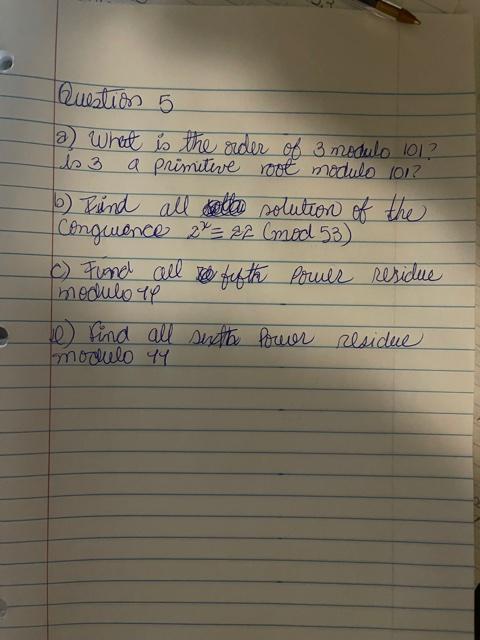 Question 5
a) What is the order of 3 modulo 101?
Is 3 a primitive root modulo 101?
b) Find all solution of the
Congruence 2ˣ ≡ 22 (mod 53)
c) Find all fifth Power residue
modulo 44
e) Find all sixth Power residue
modulo 44